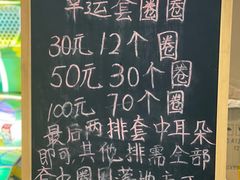 幸运套圈圈
30元12个圈
50元30个圈
100元70个圈
最后两排套中耳朵
即可,其他排需全部
套中圈圈落地方可